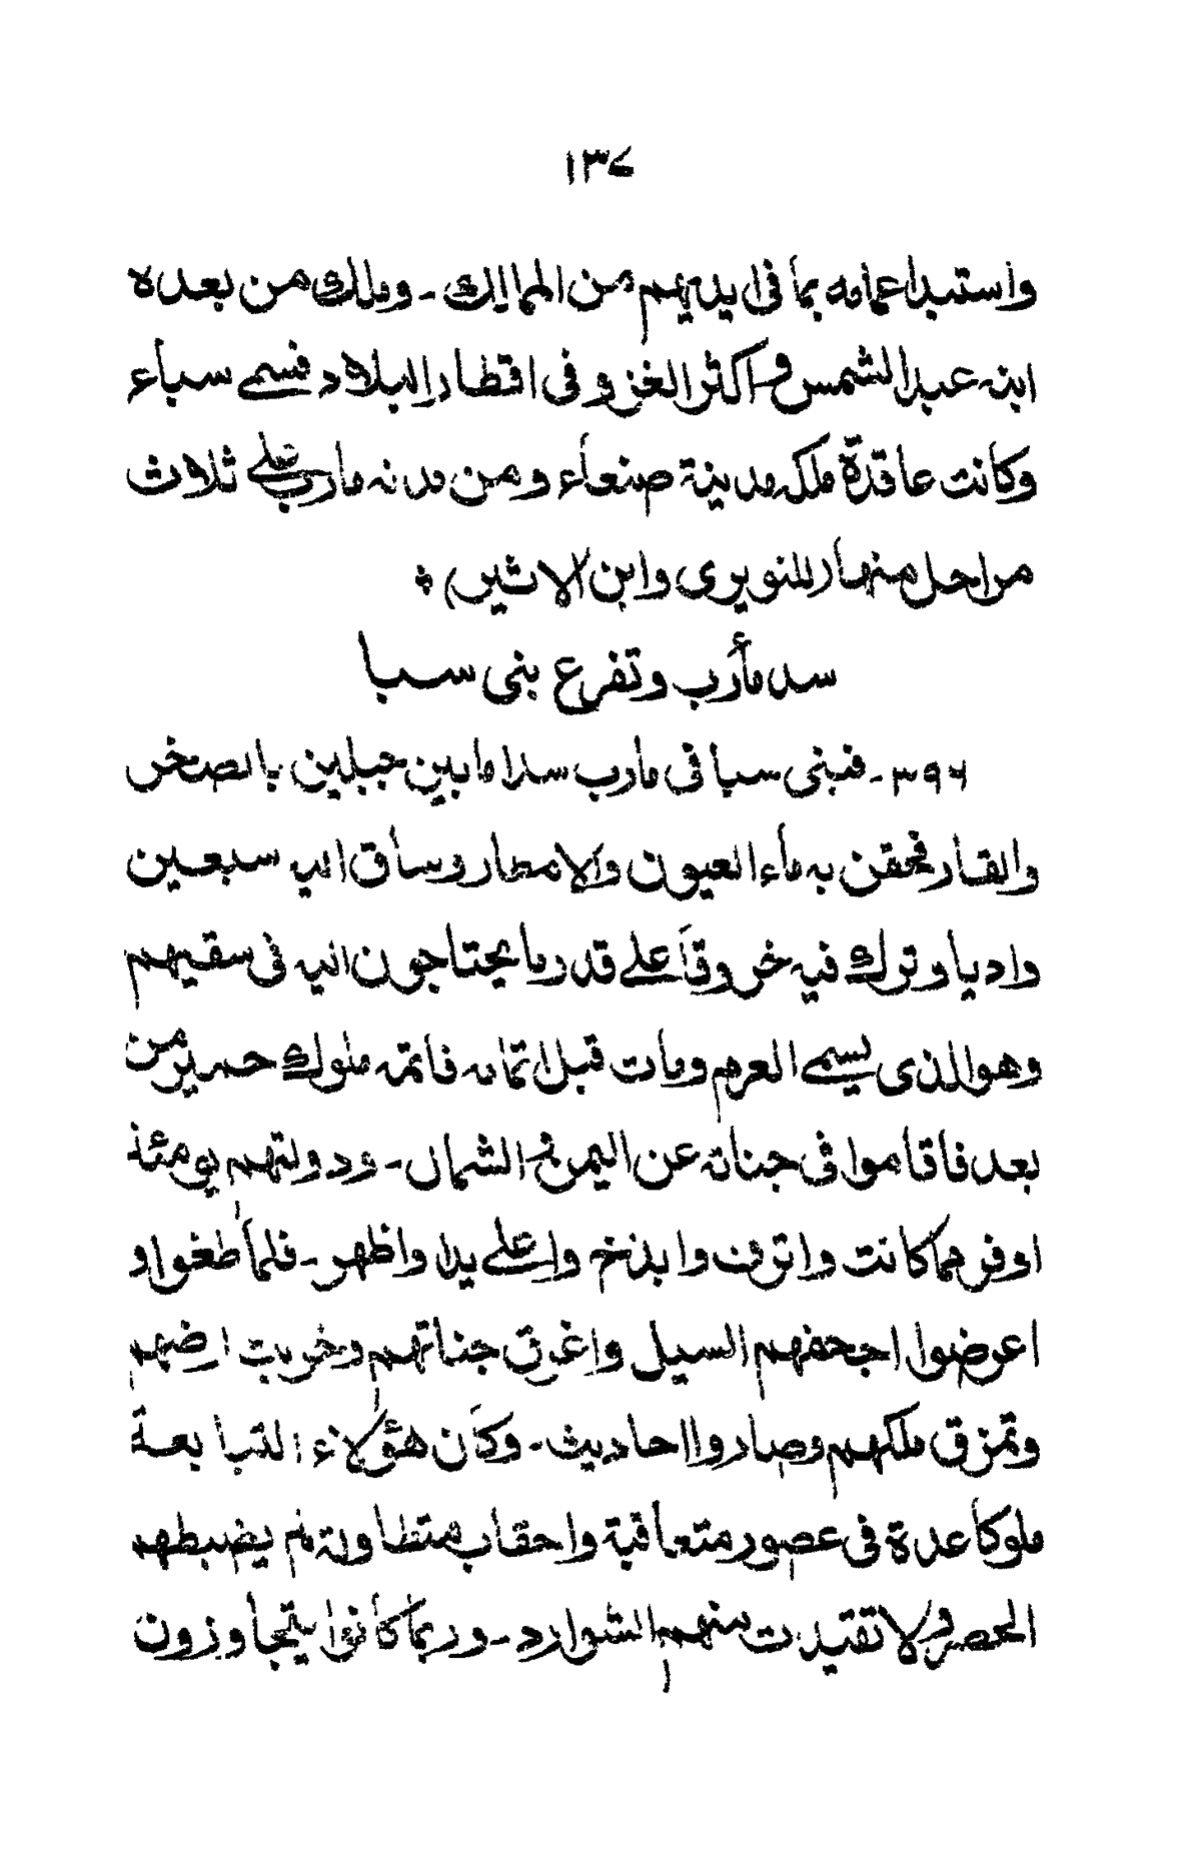 ١٣٧
واستبد اعمامه بما فى ايديهم من الممالك ـ وملك من بعده
ابنه عبد الشمس و اكثر الغزو فى اقطار البلاد فسمے سباء
وكانت عاقدة ملكه مدينة صنعاء ومن مدنه مارب علے ثلاث
مراحل منها (للنويرى وابن الاثير) ؞
سد مأرب وتفرع بنى سبا
٣٩٦ ـ فبنى سبا فى مارب سدا ما بين جبلين بالصخر
والقار فحقن به ماء العيون والامطار وساق اليه سبعين
واديا وترك فيه خروقا علے قدر ما يحتاجون اليه فى سقيهم
وهو الذى يسمے العرم ومات قبل اتمامه فاتمه ملوك حمير من
بعد فاقاموا فى جناته عن اليمن و الشمال ـ ودولتهم يومئذ
اوفر مما كانت واترف وابذخ واعلے يدا واظهر ـ فلما طغوا و
اعرضوا اجحفهم السيل واغرق جناتهم وخربت ارضهم
وتمزق ملكهم وصاروا احاديث ـ وكان هؤلاء التبابعة
ملوكا عدة فى عصور متعاقبة واحقاب متطاولة لم يضبطهم
الحصر ولا تقيدت منهم الشوارد ـ وربما كانوا يتجاوزون